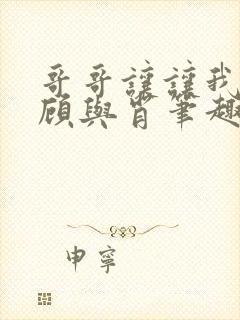 哥哥讓讓我
顧與肖筆趣
申寧